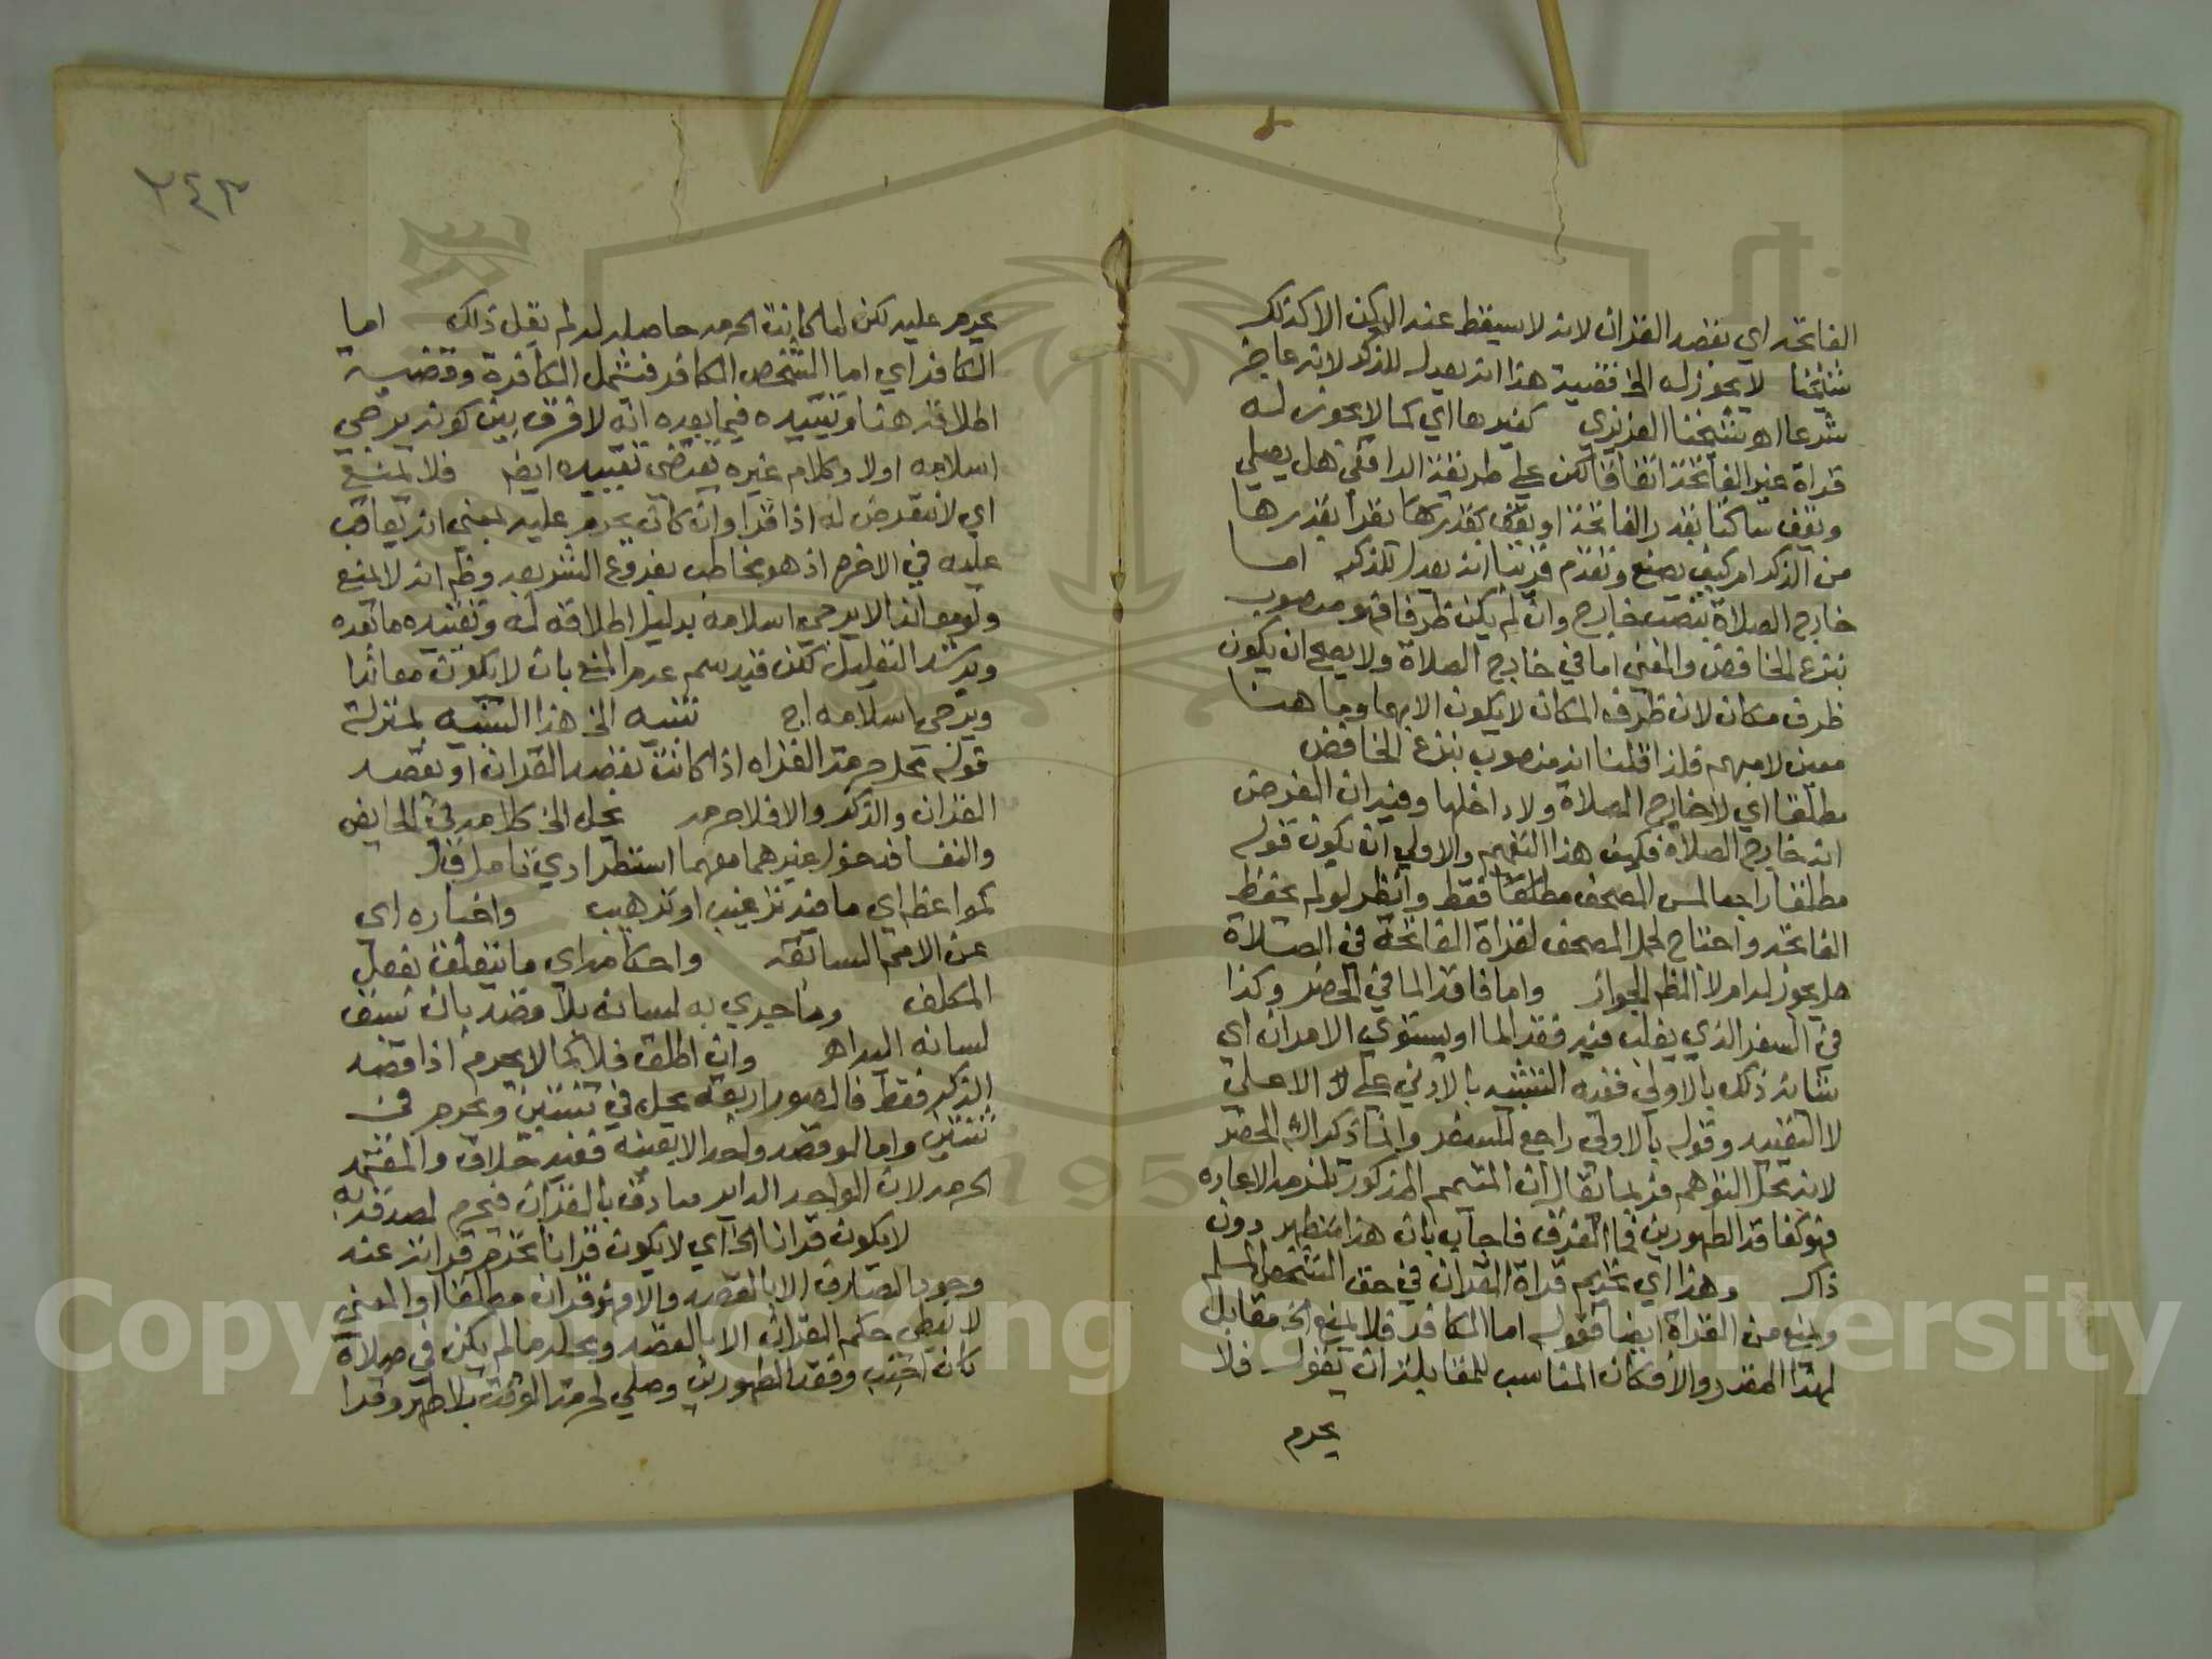 الفاتحة اي بقصد القران لانه لا يسقط عنه الركن الا كذلك
شيخنا لا يجوز له الخ قضية هذا انه يعدل للذكر لانه عاجز
شرعا اهو شيخنا العزيزي كغيرها اي كما لا يجوز له
قراة غير الفاتحة اتفاقا لكن على طريقة الرافعي هل يصلي
ويقف ساكتا بقدر الفاتحة او يقف بقدرها يقرا بقدرها
من الذكر ام كيف يصنع وتقدم قريبا انه يعدل للذكر اما
خارج الصلاة بنصب خارج وان لم يكن ظرفا فهو منصوب
بنزع الخافض والمعنى اما في خارج الصلاة ولا يصح ان يكون
ظرف مكان لان ظرف المكان لا يكون الا مبهما وما هنا
معين لا مبهم فلذا قلنا انه منصوب بنزع الخافض
مطلقا اي لا خارج الصلاة ولا داخلها وفيه ان الفرض
انه خارج الصلاة فكيف هذا التعميم والاولى ان يكون قوله
مطلقا راجعا لمس المصحف مطلقا فقط وانظر لو لم يحفظ
الفاتحة واحتاج لحمل المصحف لقراة الفاتحة في الصلاة
هل يجوز له ام لا الظم الجواز واما فاقد الما في الحضر وكذا
في السفر الذي يغلب فيه فقد الما او يستوي الامران اي
شانه ذلك بالاولى ففيه التنبيه بالادنى على الاعلى
لا التقييد وقوله بالاولى راجع للسفر وانما ذكر الشم الحضر
لانه محل التوهم فربما يقال ان المتيمم المذكور تلزمه الاعادة
فهو كفاقد الطهورين فما الفرق فاجاب بان هذا متطهر دون
ذاك وهذا اي تحريم قراة القران في حق الشخص المسلم
ويمنع من القراة ايضا فقوله اما الكافر فلا يمنع الخ مقابل
لهذا المقدر والا فكان المناسب للمقابلة ان يقول فلا
يحرم
٢٤٣
يحرم عليه لكن لما كانت الحرمة حاصلة له لم يقل ذلك اما
الكافر اي اما الشخص الكافر فشمل الكافرة وقضية
اطلاقه هنا وتقييده فيما بعده انه لا فرق بين كونه يرجى
اسلامه اولا وكلام غيره يقتضي تقييده ايضم فلا يمنع
اي لا نتعرض له اذا قرا وان كان يحرم عليه بمعنى انه يعاقب
عليه في الاخرة اذ هو مخاطب بفروع الشريعة وظم انه لا يمنع
ولو معاندا لا يرجى اسلامه بدليل اطلاقه له وتقييده ما بعده
ويرشد التعليل لكن قيد سم عدم المنع بان لا يكون معاندا
ويرجى اسلامه اج تنبيه الخ هذا التنبيه بمنزلة
قوله محل حرمة القراه اذا كانت بقصد القران او بقصد
القران والذكر والا فلا حرمة يحل الخ كلامه في الحايض
والنفسا فدخول غيرهما معهما استطرادي تامل ق ل
كمواعظه اي ما فيه ترغيب او ترهيب واخباره اي
عن الامم السابقة واحكامه اي ما يتعلق بفعل
المكلف وما جري به لسانه بلا قصد بان سبق
لسانه اليه اهو وان اطلق فلا كما لا يحرم اذا قصد
الذكر فقط فالصور اربعة يحل في ثنتين ويحرم في
ثنتين واما لو قصد واحدا لا بعينه ففيه خلاف والمعتمد
الحرمة لان الواحد الداير صادق بالقران فيحرم لصدقه به
لا يكون قرانا الخ اي لا يكون قرانا تحرم قراته عند
وجود الصارف الا بالقصد والا فهو قران مطلقا او المعنى
لا يعطى حكم القران الا بالقصد ومحله ما لم يكن في صلاة
كان اجنب وفقد الطهورين وصلي لحرمة الوقت بلا طهر وقرا